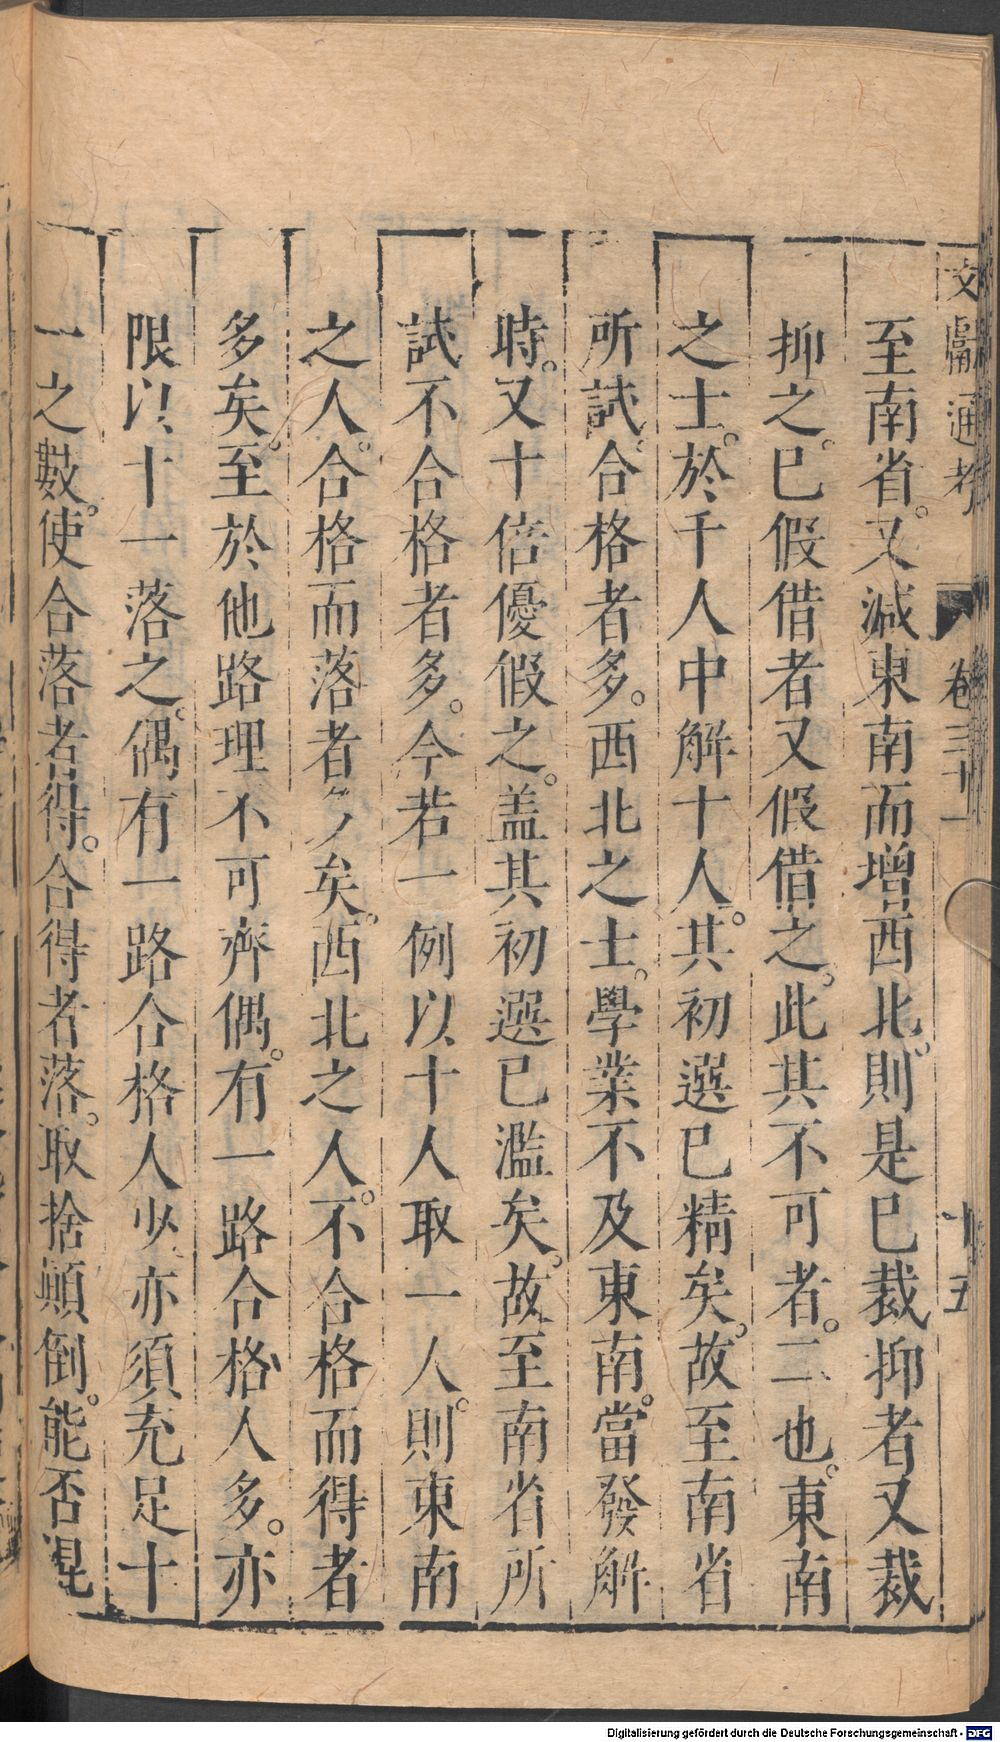 文獻通考 卷三十一 十五
至南省。又減東南而增西北。則是已裁抑者又裁
抑之。已假借者又假借之。此其不可者。二也。東南
之士。於千人中解十人。其初選已精矣。故至南省
所試。合格者多。西北之士。學業不及東南。當發解
時。又十倍優假之。盖其初選已濫矣。故至南省所
試不合格者多。今若一例以十人取一人。則東南
之人。合格而落者多矣。西北之人。不合格而得者
多矣。至於他路理不可齊偶。有一路合格人多。亦
限以十一落之。偶有一路合格人少亦須充足十
一之數。使合落者得。合得者落。取捨顛倒。能否混
Digitalisierung gefördert durch die Deutsche Forschungsgemeinschaft - DFG